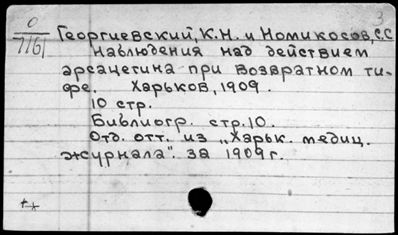 3
0
7161
Георгиевский, К.Н. и Номикосов, С.С
Наблюдения над действием
арсацетина при возвратном ти-
фе. Харьков, 1909.
10 стр.
Библиогр. стр. 10.
Отд. отт. из „Харьк. медиц.
журнала". за 1909 г.